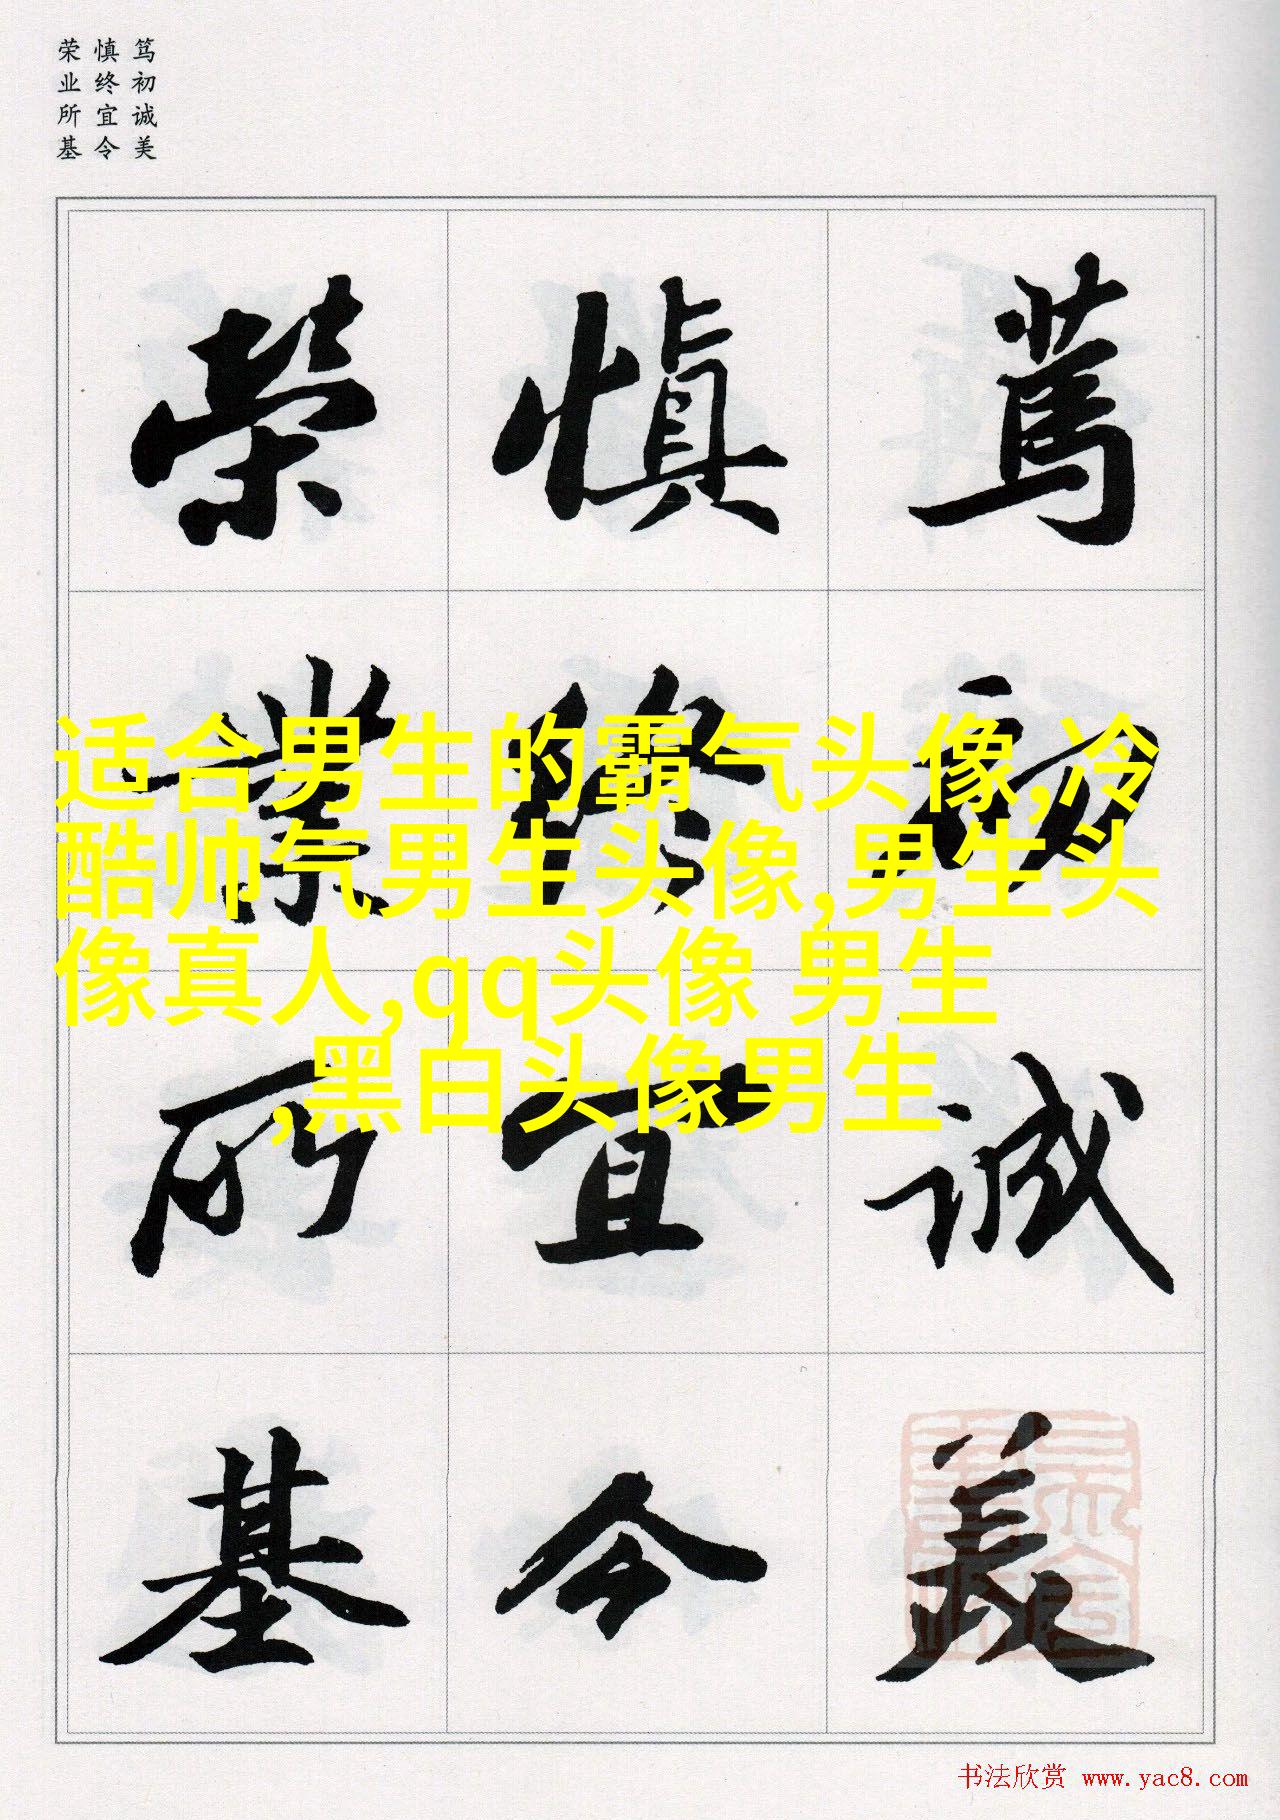 笃初诚美
慎终宜令
荣业所基
篤初誠美
慎終宜令
榮業所基
适合男生的霸气头像,冷
酷帅气男生头像,男生头
像真人,qq头像 男生
,黑白头像男生
书法欣赏 www.yac8.com